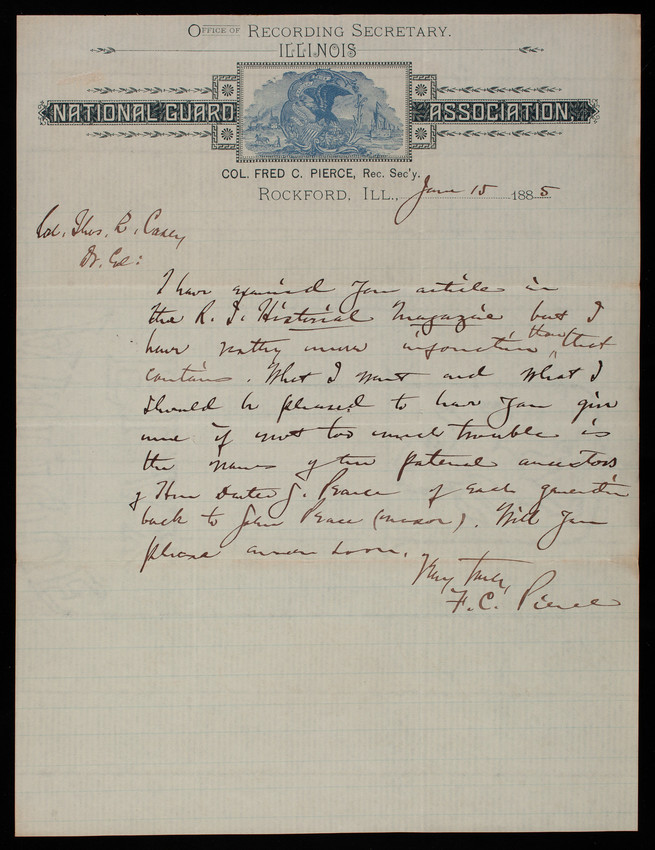 OFFICE OF RECORDING SECRETARY.
ILLINOIS
NATIONAL GUARD ASSOCIATION.
COL. FRED C. PIERCE, Rec. Sec'y.
ROCKFORD, ILL., 15 1885
Col. Thos. L. Casey,
Dr. Col:
I have examined your article in
the R. I. Historical Magazine but I
have nothing more information than that
contains. What I want and what I
should be pleased to have you give
me if not too much trouble is
the names of the paternal ancestors
of Hon Duter J. Pearce of each generation
back to John Pearce (mason). Will you
please answer soon.
Very Truly,
F. C. Pierce